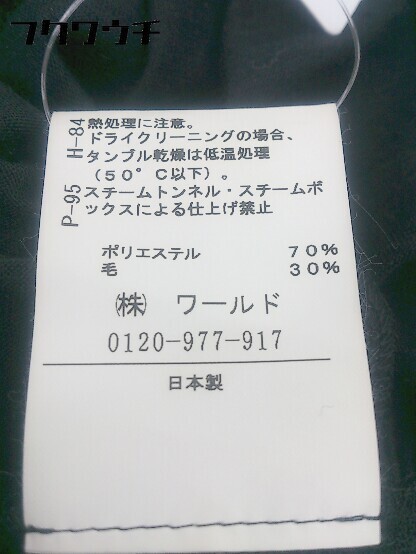 フクワウチ
H-84
熱処理に注意。
ドライクリーニングの場合、
タンブル乾燥は低温処理
(50°C以下)。
P-95
スチームトンネル・スチームボ
ックスによる仕上げ禁止
ポリエステル 70%
毛 30%
㈱ ワールド
0120-977-917
日本製